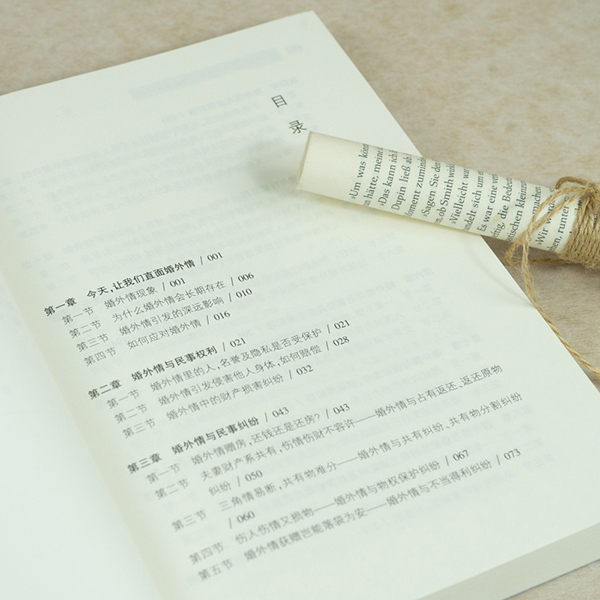 目
录
第一章 今天,让我们直面婚外情 / 001
第一节 婚外情现象 / 001
第二节 为什么婚外情会长期存在 / 006
第三节 婚外情引发的深远影响 / 010
第四节 如何应对婚外情 / 016
第二章 婚外情与民事权利 / 021
第一节 婚外情里的人,名誉及隐私是否受保护 / 021
第二节 婚外情引发侵害他人身体,如何赔偿 / 028
第三节 婚外情中的财产损害纠纷 / 032
第三章 婚外情与民事纠纷 / 043
第一节 婚外情赠房,还钱还是还房? / 043
第二节 夫妻财产系共有,伤情伤财不容许——婚外情与占有返还、返还原物
纠纷 / 050
第三节 三角情易断,共有物难分——婚外情与共有纠纷、共有物分割纠纷
/ 060
第四节 伤人伤情又损物——婚外情与物权保护纠纷 / 067
第五节 婚外情获赠岂能落袋为安——婚外情与不当得利纠纷 / 073
›Um was könn
n hätte, meine
›Das kann ich
Dapin ließ ab
ment zumind
›Sagen Sie de
n, ob Smith wird
›Vielleicht war
ndelt sich um e
Es war eine ver
ring, die Bedeu
nschen kleinzu
machen
›Wir wor
den, runter